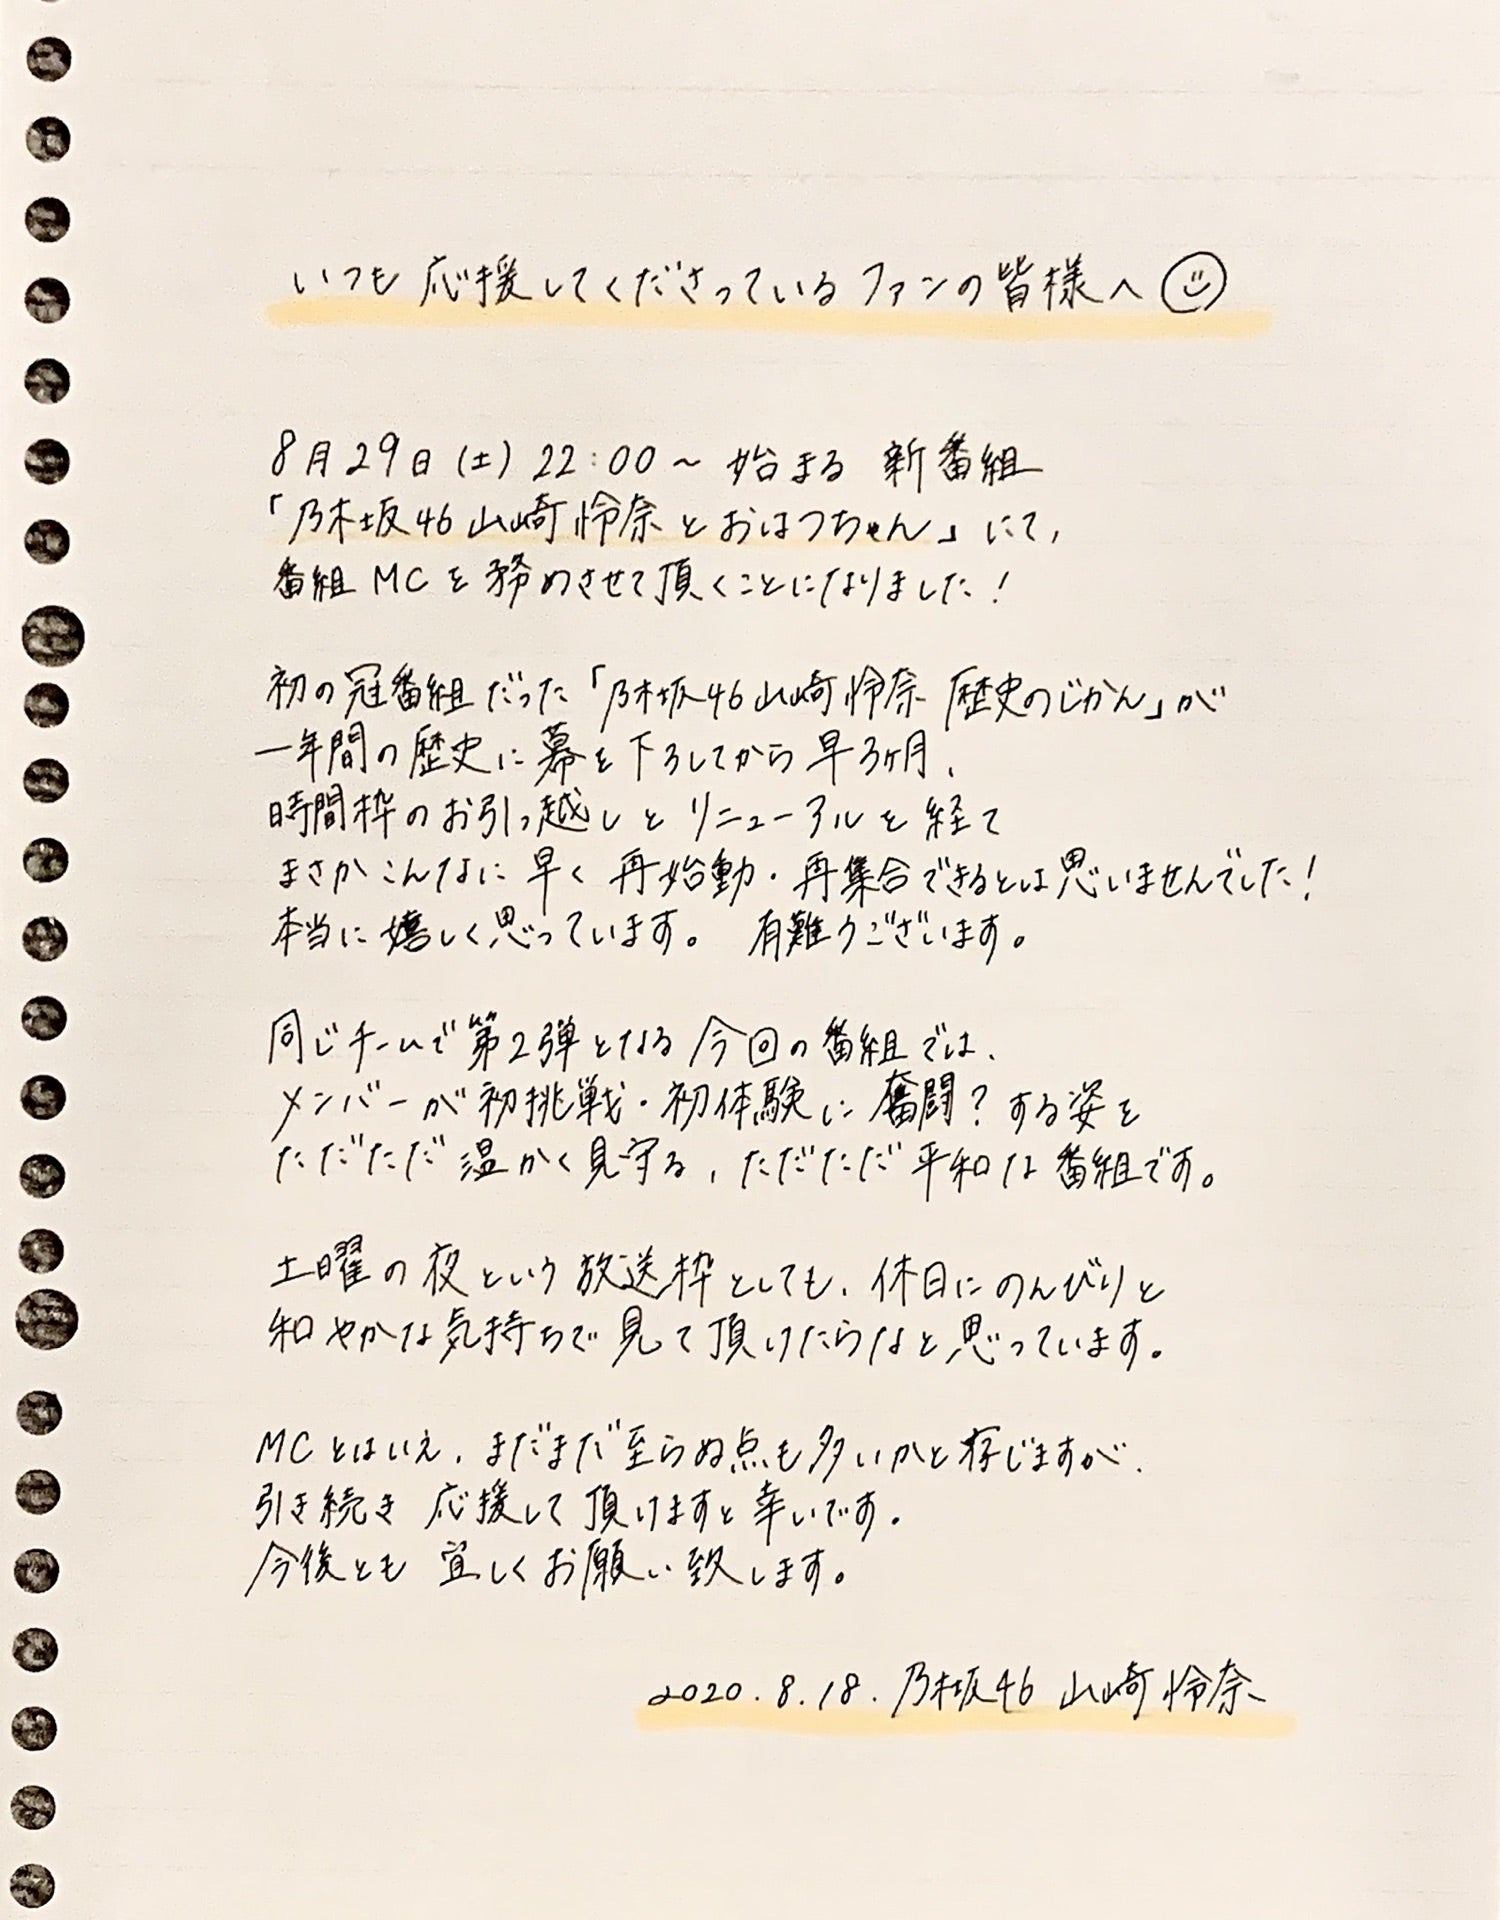 いつも応援してくださっているファンの皆様へ
8月29日(土) 22:00～始まる 新番組
「乃木坂46山崎怜奈とおはつちゃん」にて、
番組MCを務めさせて頂くことになりました!
初の冠番組だった「乃木坂46山崎怜奈 歴史のじかん」が
一年間の歴史に幕を下ろしてから早3ヶ月、
時間枠のお引っ越しとリニューアルを経て
まさかこんなに早く再始動・再集合できるとは思いませんでした!
本当に嬉しく思っています。 有難うございます。
同じチームで第2弾となる今回の番組では、
メンバーが初挑戦・初体験に奮闘?する姿を
ただただ温かく見守る、ただただ平和な番組です。
土曜の夜という放送枠としても、休日にのんびりと
和やかな気持ちで見て頂けたらなと思っています。
MCとはいえ、まだまだ至らぬ点も多いかと存じますが、
引き続き応援して頂けますと幸いです。
今後とも宜しくお願い致します。
2020.8.18.乃木坂46 山崎怜奈